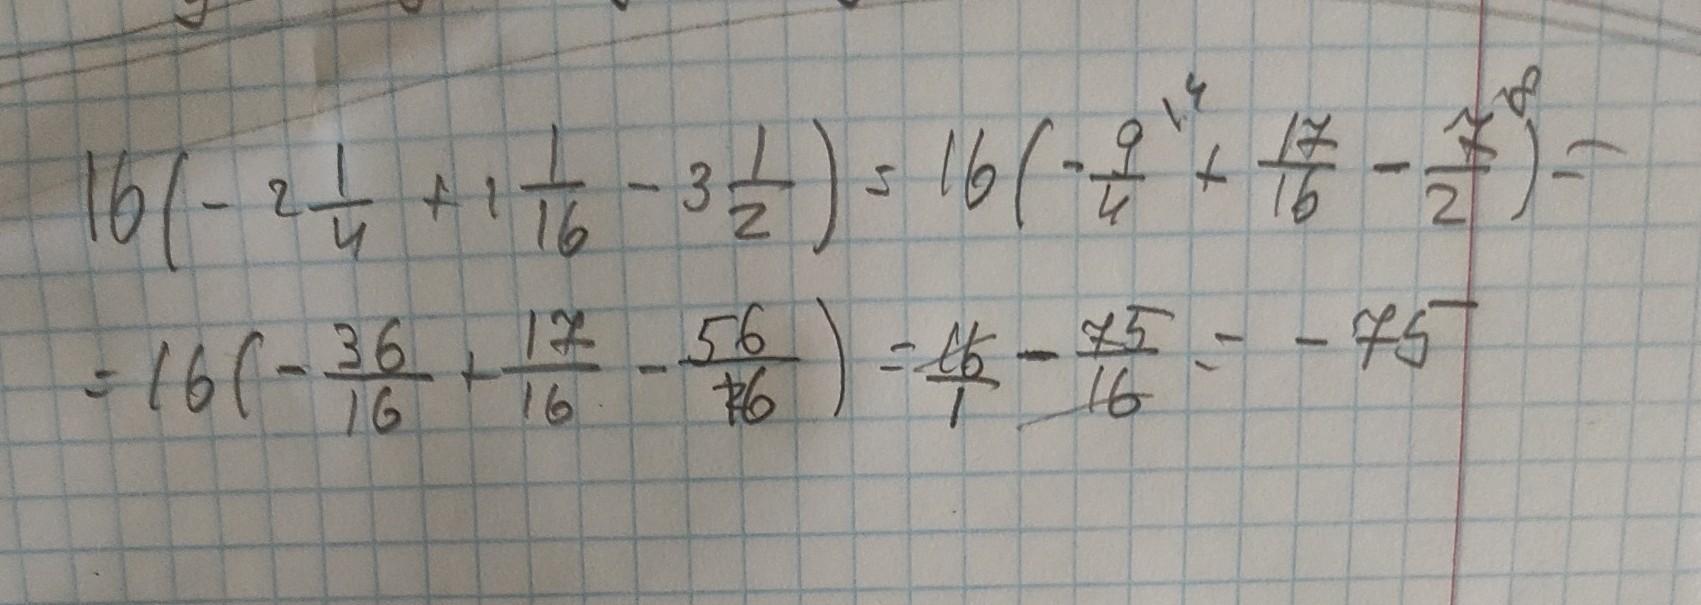 16(-2 1/4 + 1 1/16 - 3 1/2) = 16(-9/4 \4 + 17/16 - 7/2 \8) =
= 16(-36/16 + 17/16 - 56/16) = 16/1 - 75/16 = -75